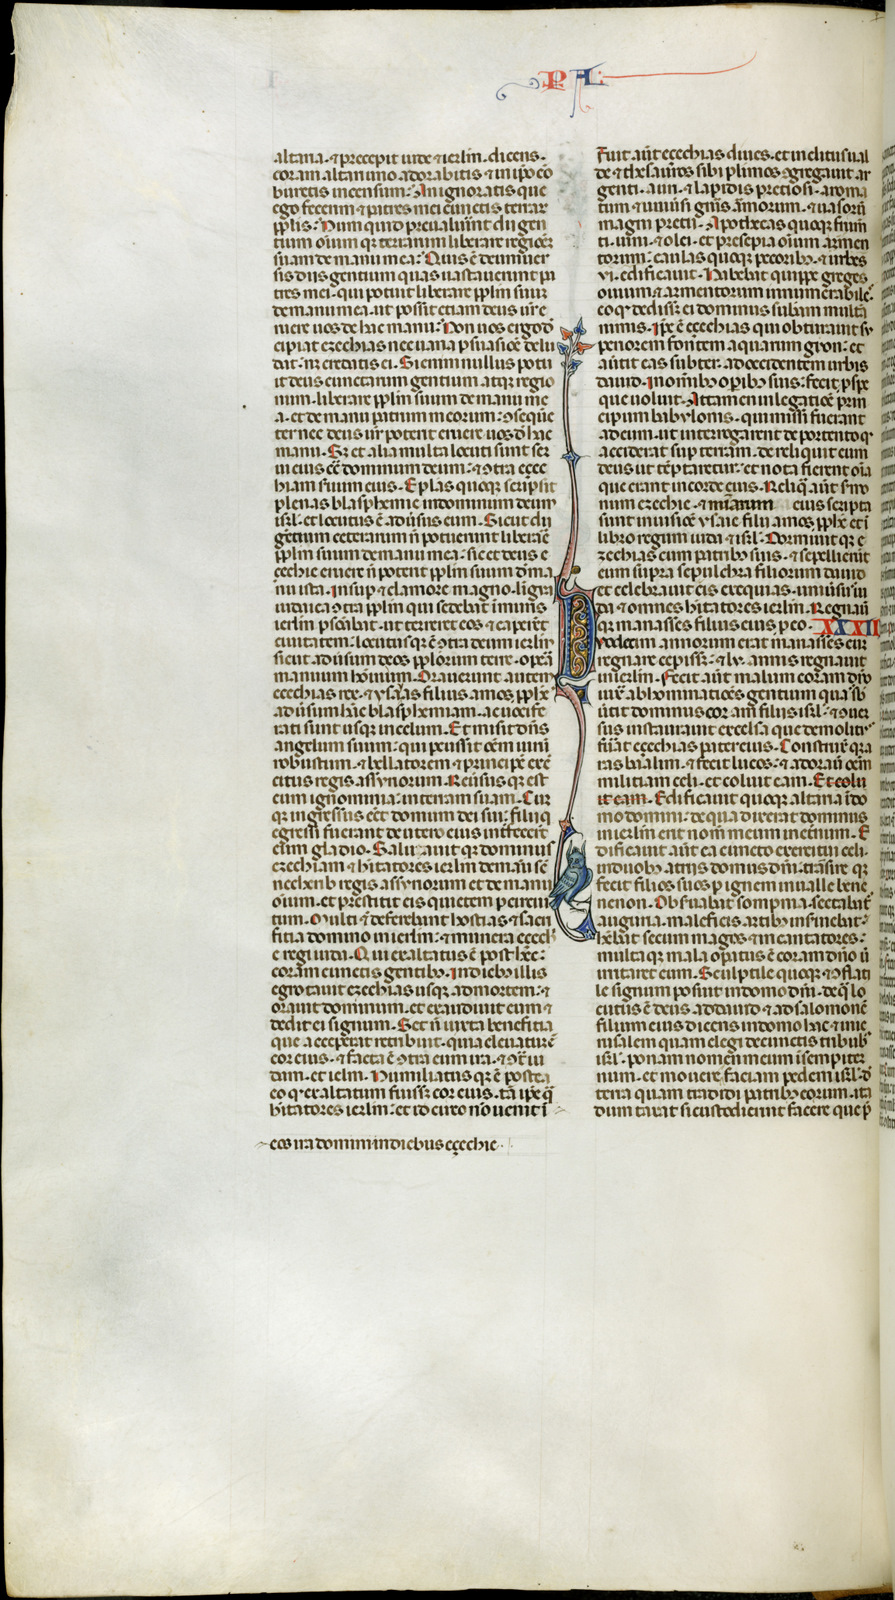 PA
altaria· ⁊ precepit iude ⁊ ierlm̄· dicens·
coram altari uno adorabitis ⁊ in ip̄o cō
buretis incensum? An ignoratis que
ego fecerim ⁊ patres mei cunctis terrar̄
pp̄lis? Num quid preualuer̄nt dii gen
tium om̄ium qꝫ terrarum liberare regionē
suam de manu mea? Quis ē de uniuer
sis diis gentium quas uastauerunt pa
tres mei· qui potuit liberare pp̄lm suum
de manu mea· ut possit etiam deus ur̄ e
ruere uos de hac manu? Non uos ergo de
cipiat ezechias nec uana ꝑsuasiōe delu
dat· neqꝫ credatis ei. Si enim nullus potu
it deus cunctarum gentium atqꝫ regio
num· liberare pp̄lm suum de manu me
a· et de manu patrum meorum: ꝯsequē
ter nec deus ur̄ poterit eruere uos de hac
manu. Sꝫ et alia multa locuti sunt ser
ui eius cōtra dominum deum: ⁊ ꝯtra ezec
hiam seruum eius. Epl̄as quoqꝫ scripsit
plenas blasphemie in dominum deum
isrl̄· et locutus ē aduersus eum. Sicut dii
gentium ceterarum n̄ potuerunt liberare
pp̄lm suum de manu mea: sic et deus e
zechie eruere n̄ potent pp̄lm suum de ma
nu ista. Insuꝑ ⁊ clamore magno· ligua
iudaica ꝯtra pp̄lm qui sedebat ī muris
ierlm̄ ꝑsonabat· ut terreret eos ⁊ caperet
ciuitatem: locutusqꝫ ē ꝯtra deum ierlm̄
sicut aduersum deos pp̄lorum terre· opera
manuum hominum. Orauerunt autem
ezechias rex· ⁊ ysaias filius amos pp̄he
aduersum hāc blasphemiam· ac uocife
rati sunt usqꝫ in celum. Et misit dn̄s
angelum suum: qui percussit om̄em uirū
robustum· ⁊ bellatorem ⁊ principē exer
citus regis assyriorum. Reuersus qꝫ est
cum ignominia: in terram suam. Cum
qꝫ ingressus eēt domum dei sui: filii qui
egressi fuerant de utero eius int̄fecerūt
eum gladio. Saluauit qꝫ dominus
ezechiam ⁊ hītatores ierlm̄ de manu sē
necherib regis assyriorum et de manu
om̄ium· et prestitit eis quietem per circui
tum. Multi ēt deferebant hostias ⁊ sacri
ficia domino in ierlm̄· ⁊ munera ezechi
e regi iuda. Qui exaltatus ē post hec:
coram cunctis gentibꝫ. In diebꝫ illis
egrotauit ezechias usqꝫ ad mortem: ⁊
orauit dominum· et exaudiuit eum ⁊
dedit ei signum. Set n̄ iuxta beneficia
que acceperat retribuit· quia eleuatum ē
cor eius· ⁊ facta ē ꝯtra eum ira· ⁊ ꝯtra iu
dam· et ierlm̄. Humiliatus qꝫ ē postea
eo qꝫ exaltatum fuisset cor eius· tā ip̄e qm̄
hītatores ierlm̄: et id circo nō uenit ī
eos ira domini in diebus ezechie·
Fuit aūt ezechias diues· et inclitus ual
de ⁊ thesauros sibi plimos ꝯgregauit ar
genti· auri· ⁊ lapidis preciosi· aroma
tum ⁊ uniuersi gn̄is armorum· ⁊ uasorū
magni precii. Apothecas quoqꝫ frum̄
ti· uini· ⁊ olei· et presepia om̄ium armen
torum: caulas quoqꝫ pecoribꝫ· ⁊ urbes
vi· edificauit. Habebat quippe greges
ouium ⁊ armentorum innumerabiles:
eo qꝫ dedisset ei dominus subam multā
nimis. Ip̄e ē ezechias qui obturauit su
periorem fontem aquarum gyon: et
au̇tit eas subter· ad occidentem urbis
dauid. In om̄ibꝫ opībꝫ suis: fecit ꝓspe
que uoluit. Attamen in legatiōe prin
cipum babylonis· qui missi fuerant
ad eum· ut interrogarent de portento qꝫ
acciderat suꝑ terram: de reliquit eum
deus ut tēptaretur: et nota fierent oīa
que erant in corde eius. Reliqꝫ aūt s̄mo
num ezechie· ⁊ mīarum eius scripta
sunt in uisiōe ysaie filii amos pp̄he et ī
libro regum iuda ⁊ isrl̄. Dormiuit qꝫ e
zechias cum patribꝫ suis· ⁊ sepelierūt
eum supra sepulchra filiorum dauid
et celebrauit eis exequias· uniuersus iu
da ⁊ omnes hītatores ierlm̄. Regnauit
qꝫ manasses filius eius ꝓ eo· XXXIII
Duodecim annorum erat manasses cum
regnare cepisset: ⁊ lv· annis regnauit
in ierlm̄. Fecit aūt malum coram dn̄o
iuxᷓ abhominatiōes gentium quas sub
ūtit dominus coram filiis isrl̄: ⁊ ꝯuer
sus instaurauit excelsa que demolitꝰ
fuerat ezechias pater eius. Construxit qꝫ a
ras baalim· ⁊ fecit lucos: ⁊ adorauit om̄em
militiam celi· et coluit eam. Et colu
it eam. Edificauit quoqꝫ altaria ī do
mo domini: de qua dixerat dominus
in ierlm̄ erit nom̄ meum in et̄num. E
dificauit aūt ea cuncto exercitui celi·
in duobꝫ atriis domus dn̄i: trāsire qꝫ
fecit filios suos ꝑ ignem in ualle bene
nenon. Obseruabat sompnia· sectabat̄
auguria· maleficis artibꝫ inseruiebat:
hēbat secum magos ⁊ incantatores:
multa qꝫ mala oꝑatus ē coram dn̄o ut
irritaret eum. Sculptile quoqꝫ ⁊ ꝯflati
le signum posuit in domo dn̄i· de qᷓ lo
cutus ē deus ad dauid ⁊ ad salomonē
filium eius dicens in domo hac ⁊ in ie
rusalem quam elegi de cunctis tribubꝫ
isrl̄· ponam nomen meum ī sempiter
num· et mouere faciam pedem isrl̄· de
terra quam tradidi patribꝫ eorum· ita
dum taxat si custodierint facere que p̄